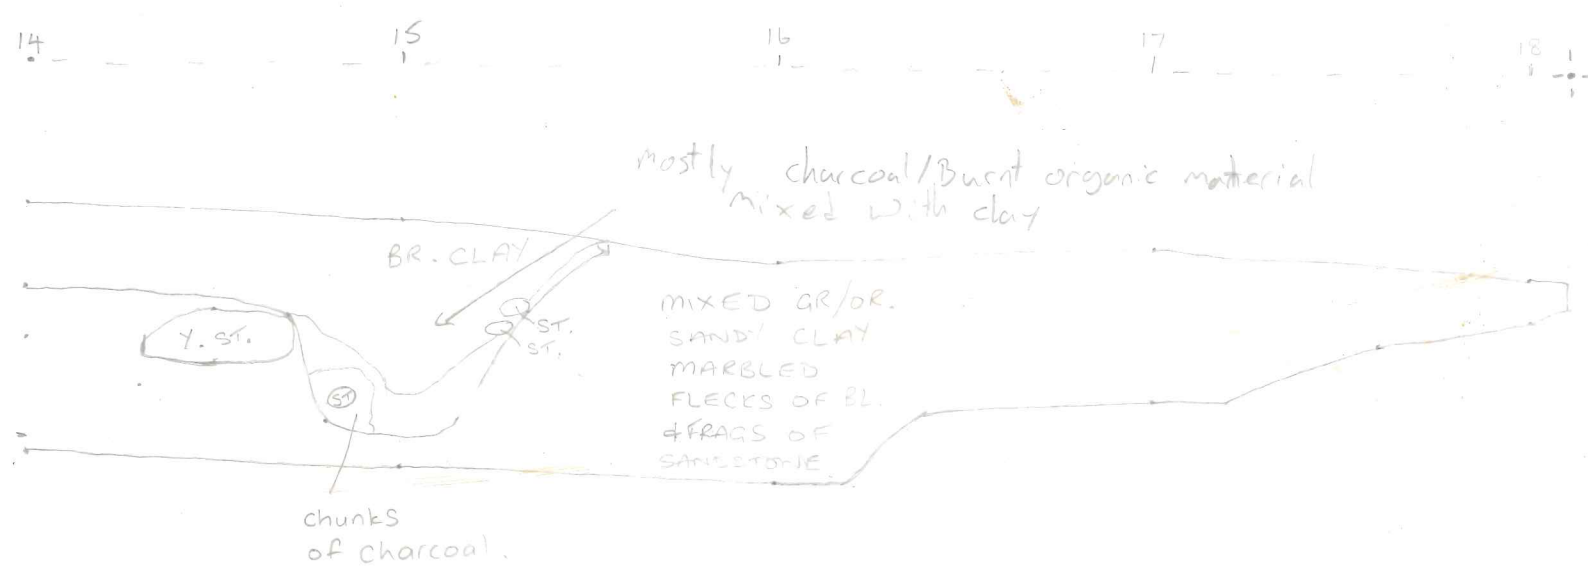 14 15 16 17 18
mostly charcoal/Burnt organic material
mixed with clay
BR. CLAY
Y. ST.
ST.
ST.
ST
MIXED GR/OR.
SANDY CLAY
MARBLED
FLECKS OF BL.
& FRAGS OF
SANDSTONE
chunks
of charcoal.